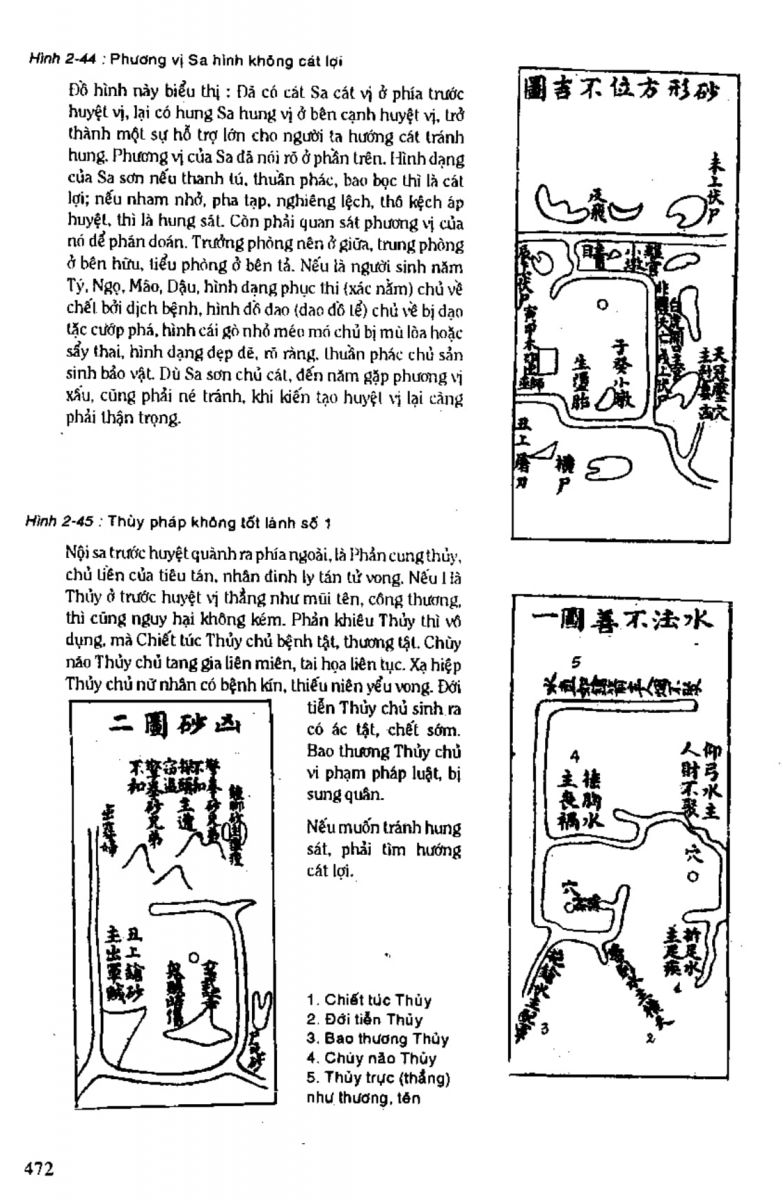 Hình 2-44 : Phương vị Sa hình không cát lợi
Đồ hình này biểu thị : Đã có cát Sa cát vị ở phía trước
huyệt vị, lại có hung Sa hung vị ở bên cạnh huyệt vị, trở
thành một sự hỗ trợ lớn cho người ta hướng cát tránh
hung. Phương vị của Sa đã nói rõ ở phần trên. Hình dạng
của Sa sơn nếu thanh tú, thuần phác, bao bọc thì là cát
lợi; nếu nham nhở, pha tạp, nghiêng lệch, thô kệch áp
huyệt, thì là hung sát. Còn phải quan sát phương vị của
nó để phán đoán. Trưởng phòng nên ở giữa, trung phòng
ở bên hữu, tiểu phòng ở bên tả. Nếu là người sinh năm
Tý, Ngọ, Mão, Dậu, hình dạng phục thi (xác nằm) chủ về
chết bởi dịch bệnh, hình đồ đao (dao đồ tể) chủ về bị đạo
tặc cướp phá, hình cái gò nhỏ méo mó chủ bị mù lòa hoặc
sẩy thai, hình dạng đẹp đẽ, rõ ràng, thuần phác chủ sản
sinh bảo vật. Dù Sa sơn chủ cát, đến năm gặp phương vị
xấu, cũng phải né tránh, khi kiến tạo huyệt vị lại càng
phải thận trọng.
圖吉不位方形砂
未上伏尸
反飛
辰上伏尸
子癸小墩
生墮胎
丑上屠刀
橫尸
Hình 2-45 : Thủy pháp không tốt lành số 1
Nội sa trước huyệt quành ra phía ngoài, là Phản cung thủy,
chủ tiền của tiêu tán, nhân đinh ly tán tử vong. Nếu là
Thủy ở trước huyệt vị thẳng như mũi tên, công thương,
thì cũng nguy hại không kém. Phản khiêu Thủy thì vô
dụng, mà Chiết túc Thủy chủ bệnh tật, thương tật. Chùy
não Thủy chủ tang gia liên miên, tai họa liên tục. Xạ hiệp
Thủy chủ nữ nhân có bệnh kín, thiếu niên yểu vong. Đới
tiễn Thủy chủ sinh ra
có ác tật, chết sớm.
Bao thương Thủy chủ
vi phạm pháp luật, bị
sung quân.
Nếu muốn tránh hung
sát, phải tìm hướng
cát lợi.
二圖砂凶
丑上鎗砂
主出軍賊
一圖善不法水
5
4
主喪禍
仰弓水主
人財不發
穴
穴
折足水
主足疾
1
3
2
1. Chiết túc Thủy
2. Đới tiễn Thủy
3. Bao thương Thủy
4. Chùy não Thủy
5. Thủy trực (thẳng)
như thương, tên
472